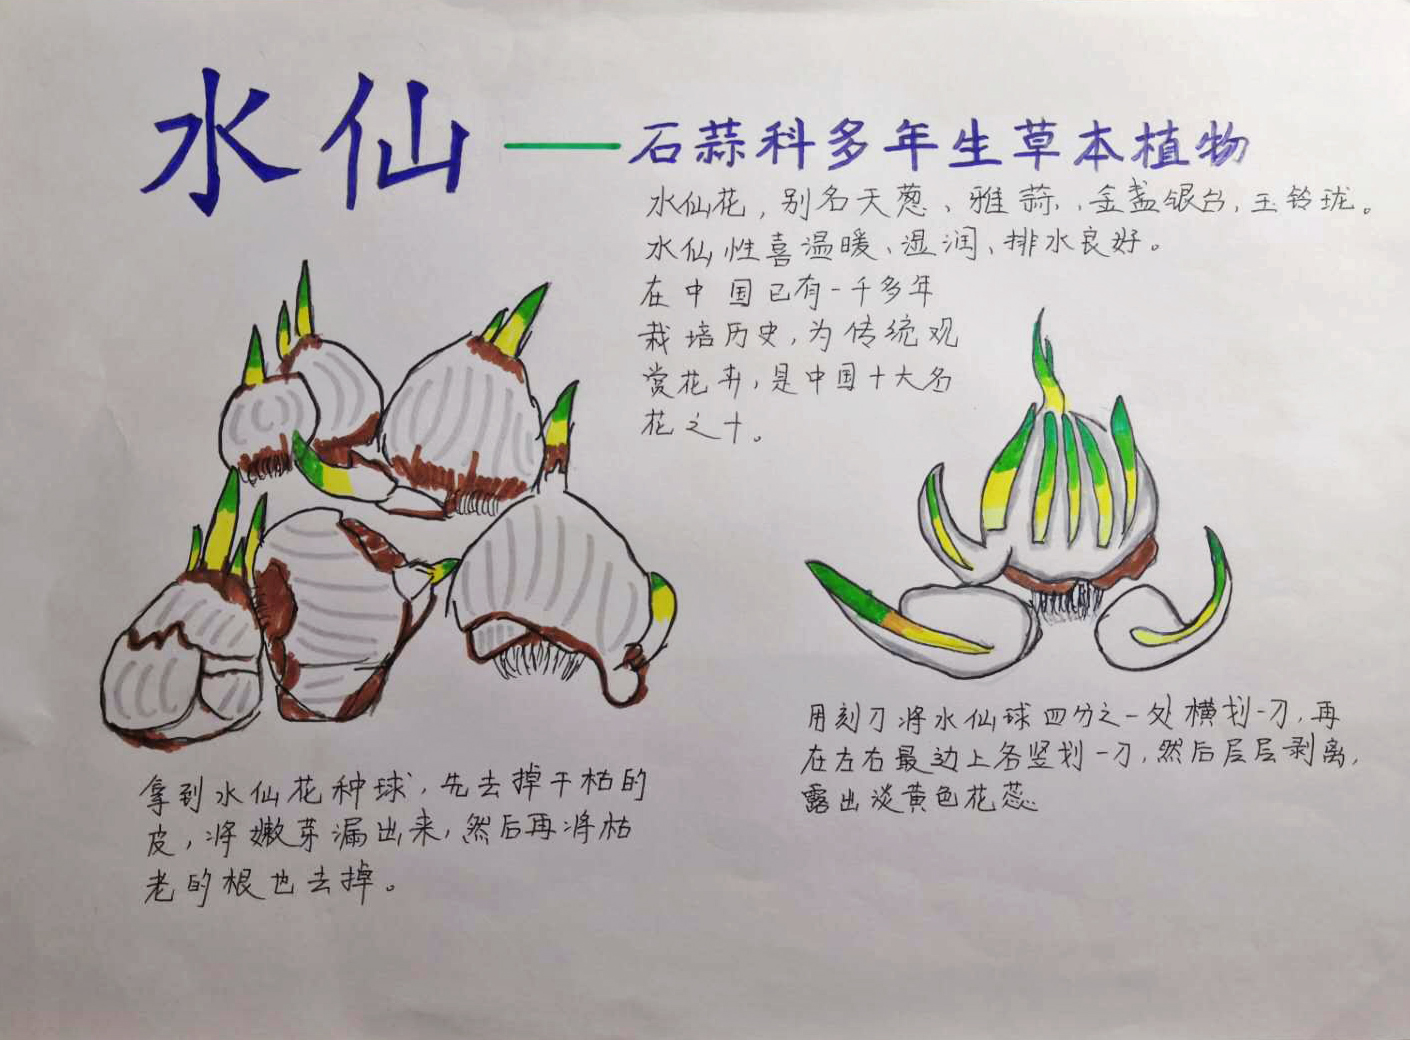 水仙——石蒜科多年生草本植物
水仙花，别名天葱、雅蒜、金盏银台，玉铃珑。
水仙性喜温暖、湿润、排水良好。
在中国已有一千多年
栽培历史，为传统观
赏花卉，是中国十大名
花之十。
拿到水仙花种球，先去掉干枯的
皮，将嫩芽漏出来，然后再将枯
老的根也去掉。
用刻刀将水仙球四分之一处横划一刀，再
在左右最边上各竖划一刀，然后层层剥离，
露出淡黄色花蕊